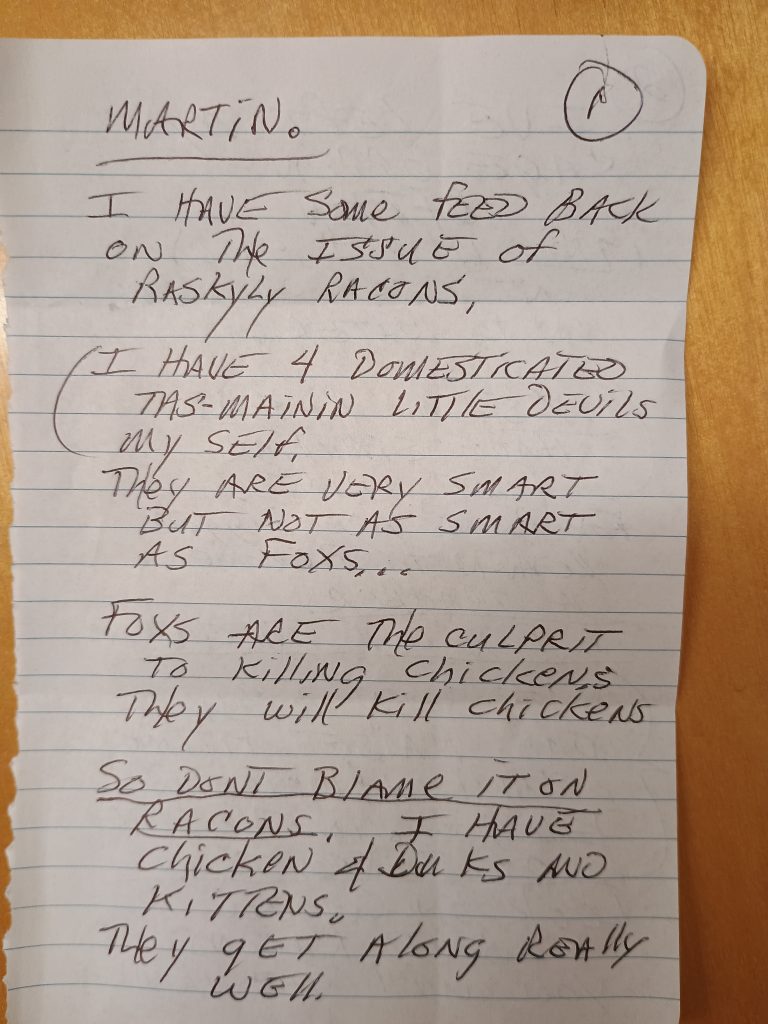 1
MARTiN.
I HAVE Some FEED BACK
ON The ISSUE of
RASKyLy RACONS,
(I HAVE 4 DOMESTICATED
TAS-MAININ LiTTlE DEVilS
My SElf.
They ARE VERy SMART
BUT NOT AS SMART
AS FOXS...
FOXS ARE The CULPRIT
TO KilliNg ChickENS
They will Kill ChickENS
SO DONT BlAme iT ON
RACONS. I HAVE
ChickEN & DuKS AND
KiTTENS.
They gET AloNg REAlly
WEll.